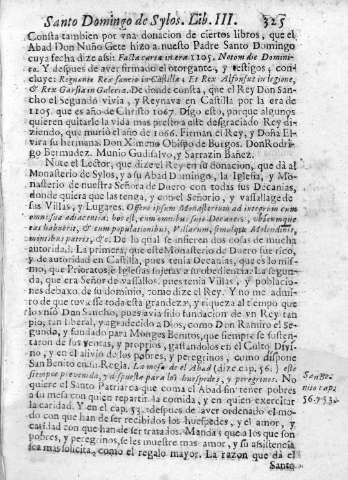 Santo Domingo de Sylos. Lib. III. 325
Consta tambien por vna donacion de ciertos libros, que el
Abad Don Nuño Gete hizo a nuestro Padre Santo Domingo
cuya fecha dize assi: Facta carta in era 1105. Notum die Domini-
ca. Y despues de aver firmado el otorgante, y testigos, con-
cluye: Regnante Rex Sancio in Castilla; Et Rex Alfonsus in legione,
& Rex Garsia in Galecia. De donde consta, que el Rey Don San-
cho el segundo vivia, y Reynava en Castilla por la era de
1105. que es año de Christo 1067. Digo esto, porque algunos
quieren quitarle la vida mas presto a este desgraciado Rey di-
ziendo, que murió el año de 1066. Firman el Rey, y Doña El-
vira su hermana: Don Ximeno Obispo de Burgos. Don Rodri-
go Bermudez. Munio Gudisalvo, y Sarrazin Bañez.
Note el Lector, que dize el Rey en su donacion, que dà al
Monasterio de Sylos, y a su Abad Domingo, la Iglesia, y Mo-
nasterio de nuestra Señora de Duero con todas sus Decanias,
donde quiera que las tenga, y con el Señorio, y vasallage de
sus Villas, y Lugares. Offero ipsum Monasterium ad integrum cum
omni sua adiacentia: hoc est, cum omnibus suis Decaneis, vbicumque
eas habueris, & cum populationibus, Villarum, simulque Molendinis,
minibus patris, &c. De lo qual se infieren dos cosas de mucha
autoridad. La primera, que este Monasterio de Duero fue rico,
y de autoridad en Castilla, pues tenia Decanias, que es lo mis-
mo, que Prioratos, è Iglesias sujetas a su obediencia. La segun-
da, que era Señor de vasallos, pues tenia Villas, y poblacio-
nes debaxo de su dominio, como dize el Rey. Y no me admi-
ro de que tuviesse toda esta grandeza, y riqueza al tiempo que
los vnió Don Sancho, pues avia sido fundacion de vn Rey tan
pio, tan liberal, y agradecido a Dios, como Don Ramiro el Se-
gundo, y fundado para Monges Benitos, que siempre se susten-
taron de sus rentas, y proprios, gastandolos en el Culto Divi-
no, y en el alivio de los pobres, y peregrinos, como dispone
San Benito en su Regla. La mesa de el Abad (dize cap. 56.) estè
siempre prevenida, y dispuesta para los huespedes, y peregrinos. No
quiere el Santo Patriarca que coma el Abad sin tener pobres
a su mesa con quien repartir la comida, y en quien exercitar
la caridad. Y en el cap. 53. despues de aver ordenado el mo-
do con que han de ser recibidos los huespedes, y el amor, y
caridad con que han de ser tratados. Manda, que a los que son
pobres, y peregrinos, se les muestre mas amor, y su assistencia
sea mas solicita, como el regalo mayor. La razon que dà el
Santo
San Be-
nito cap.
56. y 53.